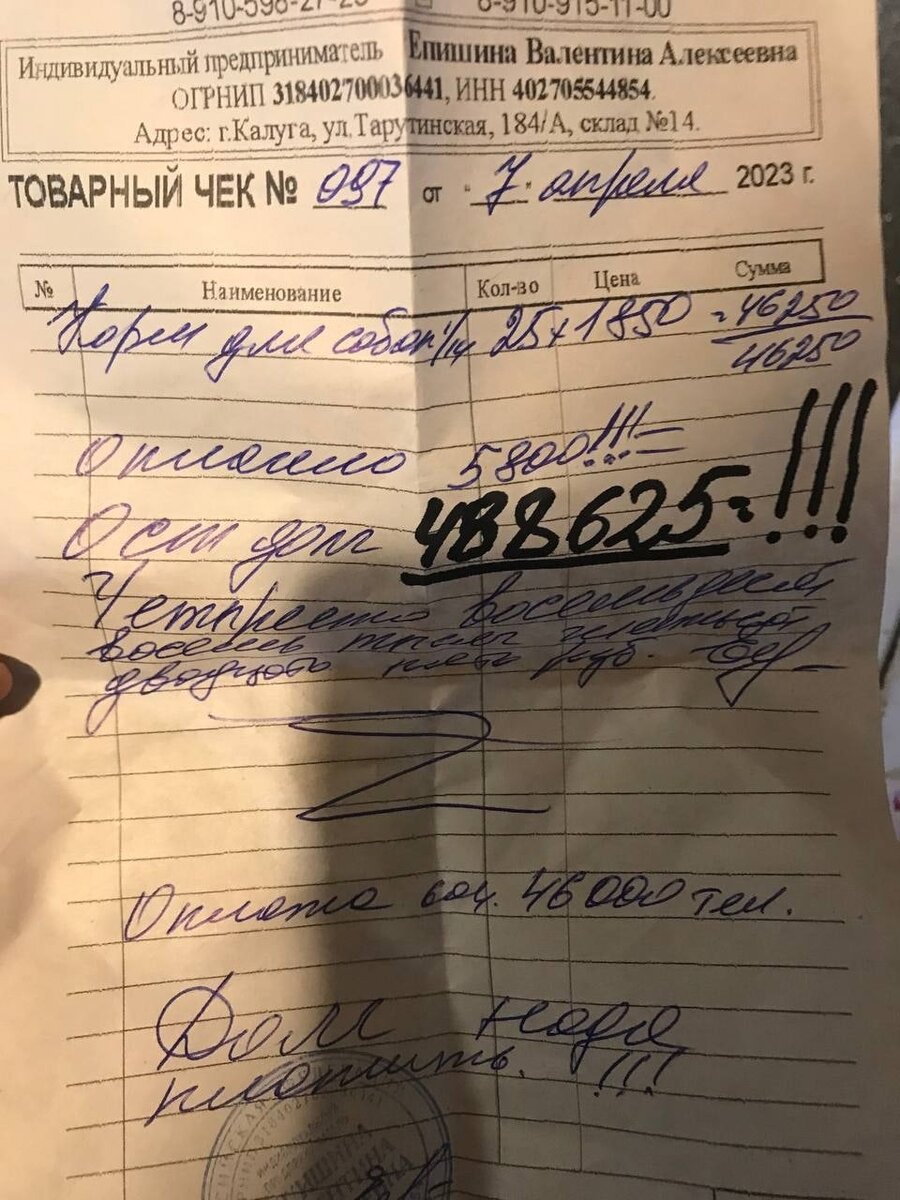 8-910-598-27-25 8-910-915-11-00
Индивидуальный предприниматель Епишина Валентина Алексеевна
ОГРНИП 318402700036441, ИНН 402705544854.
Адрес: г.Калуга, ул.Тарутинская, 184/А, склад №14.
ТОВАРНЫЙ ЧЕК № 097 от "7" апреля 2023 г.
№ Наименование Кол-во Цена Сумма
Корм для собак 25 x 1850 = 46250
46250
Оплачено 5800!!! =
Ост долг 488625= !!!
Четыреста восемьдесят
восемь тысяч шестьсот
двадцать пять руб.
Оплата 46000 тел.
Долг надо
платить. !!!
ЕПИШИНА
ВАЛЕНТИНА